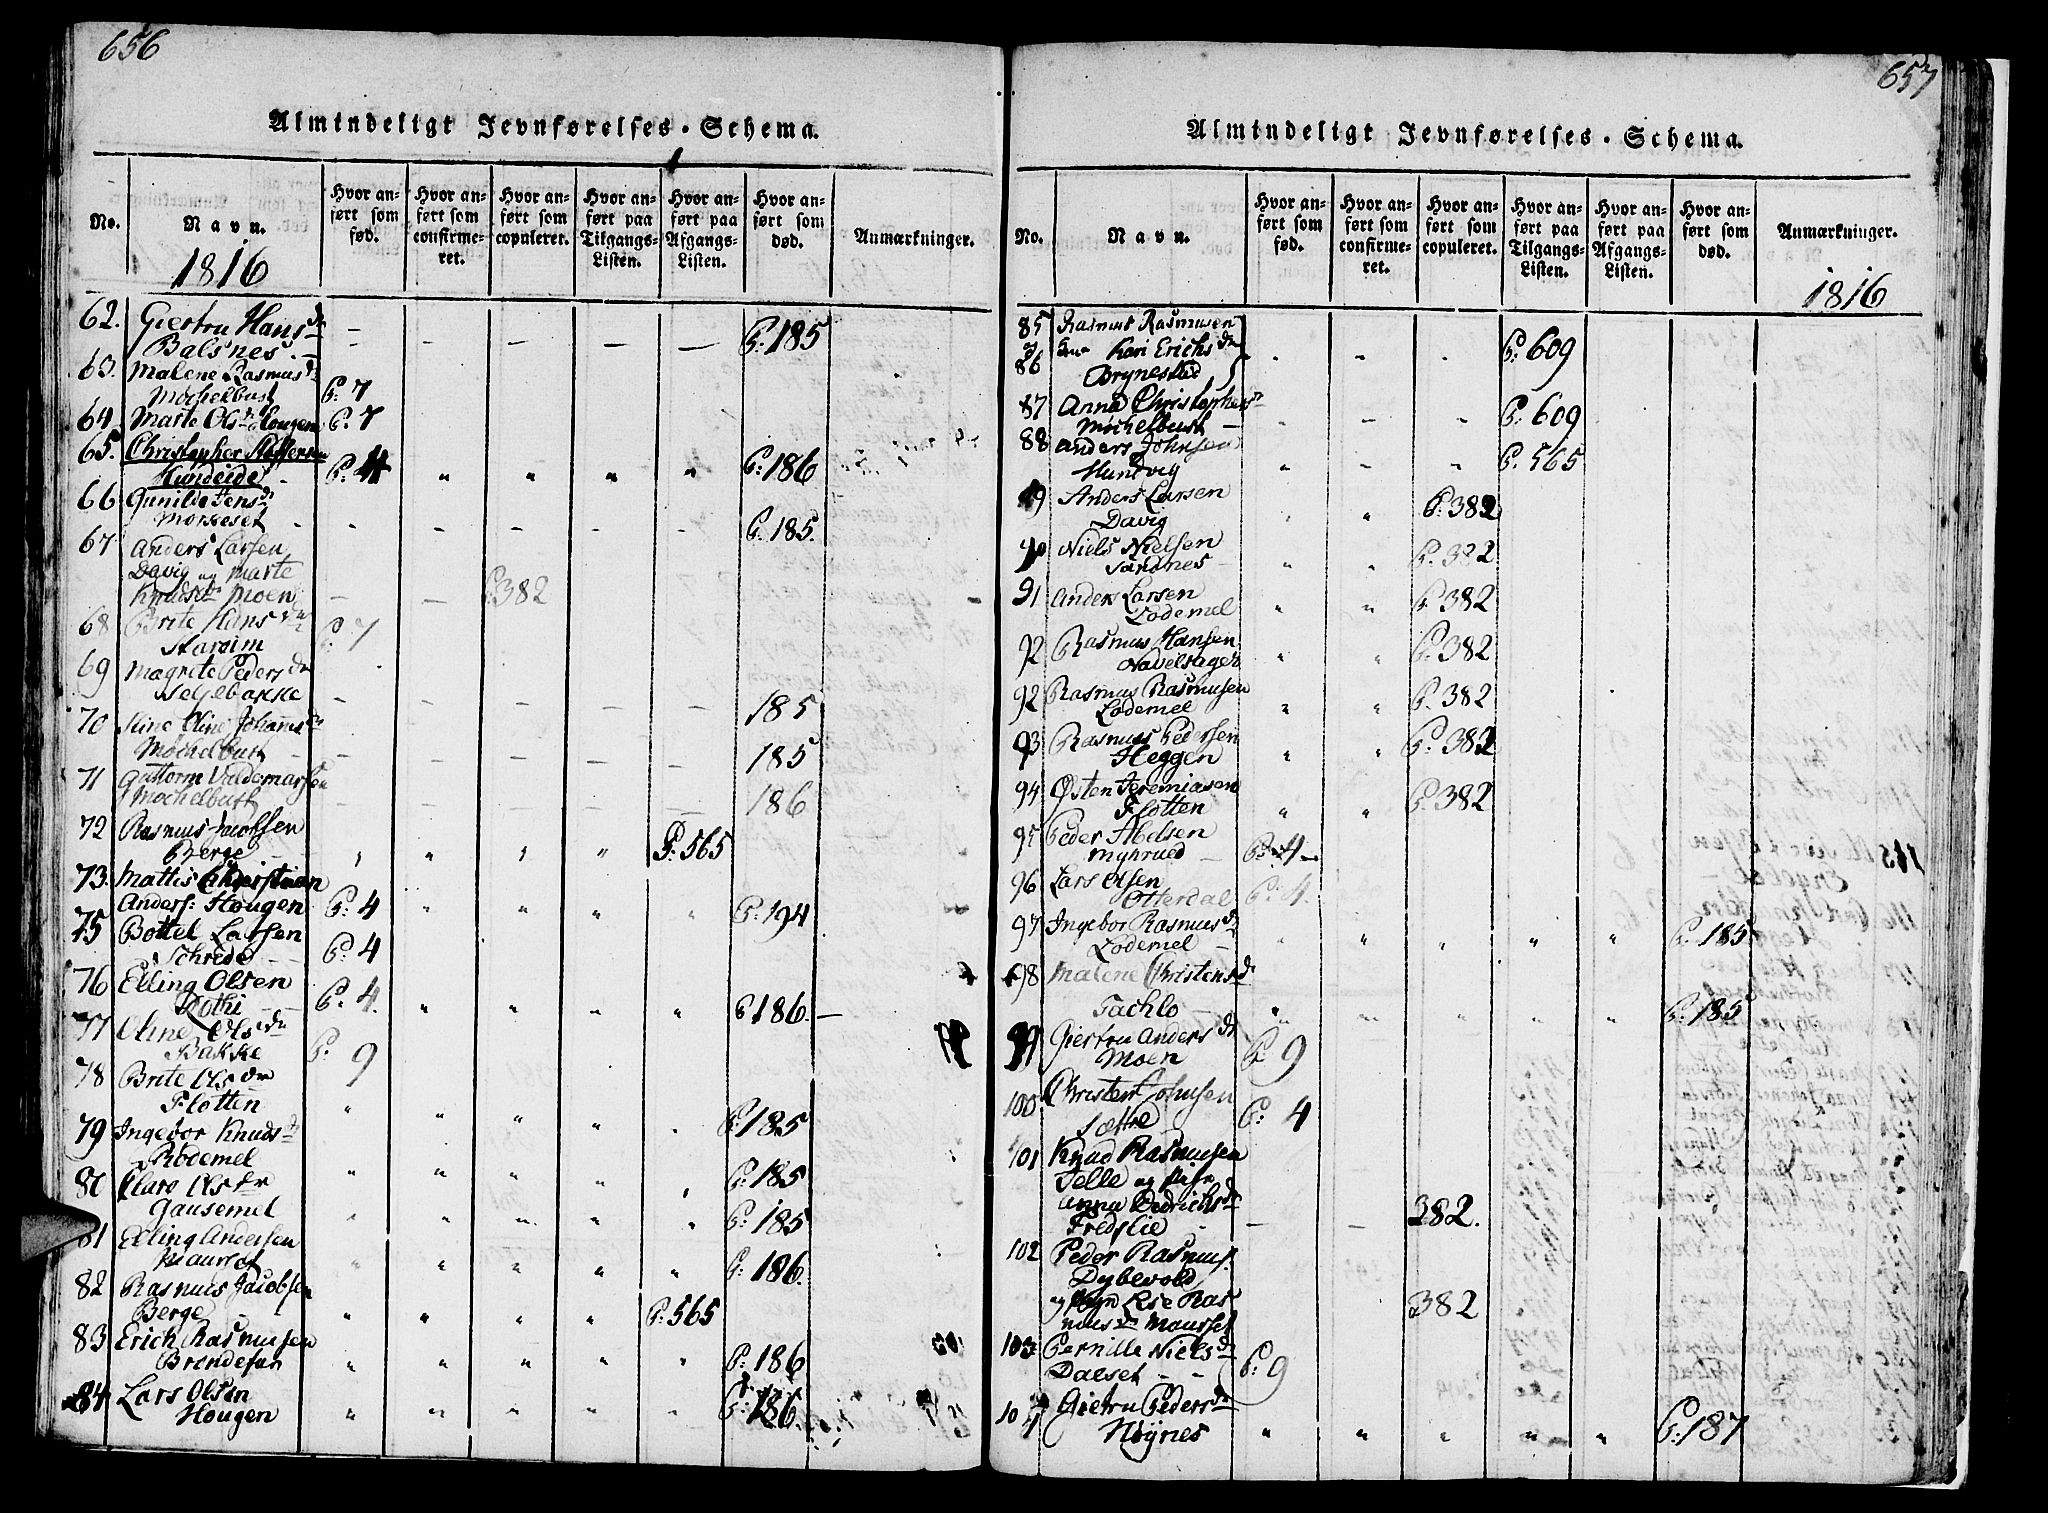 656
Almindeligt Jevnførelses-Schema.
No.
Navn.
1816
Hvor anført som fød.
Hvor anført som confirmeret.
Hvor anført som copuleret.
Hvor anført paa Tilgangs-Listen.
Hvor anført paa Afgangs-Listen.
Hvor anført som død.
Anmærkninger.
62. Giertru Hansdr
Balsnes - - - - - P: 185
63. Malene Rasmusdr
Mochelbust P: 7
64 Marte Olsdr Hougen P: 7
65. Christopher
P: 4 " " " " P: 186
66 Gunilde Jensdr
Morkeset - - - - - P. 185.
67 Anders Larsen
Davig og Marte
Knudsdr Moen - - P: 382
68 Brite Hansdr
P: 7
69 Magrete Pedersdr
Helsebakke - - - - - 185
70 Stine Oline Johansdr
Mochelbust - - - - - 185
71 Guttorm Valdemarsen
Mochelbust - - - - - 186
72 Rasmus Jacobsen
Berge " " " " P: 565
73. Mattis Christian
Anders: Hougen P: 4 " " " " P: 194
75 Bottel Larsen
Schrede P: 4
76 Elling Olsen
Rothi P. 4. " " " " P 186. -
77 Oline Olsdr
Bakke P: 9
78 Brite Olsdr
Flotten " " " " " P. 185
79 Ingebor Knudsdr
Rödemel " " " " " P: 185
80 Olsdr
Gausemel " " " " " P: 185
81 Elling Andersen
Maurset " " " " " P: 186.
82 Rasmus Jacobsen
Berge " " " " P. 565
83 Erich Rasmusen
" " " " " P: 186
84 Lars Olsen
Hougen " " " " " P: 186.
657
Almindeligt Jevnførelses-Schema.
No.
Navn.
Hvor anført som fød.
Hvor anført som confirmeret.
Hvor anført som copuleret.
Hvor anført paa Tilgangs-Listen.
Hvor anført paa Afgangs-Listen.
Hvor anført som død.
Anmærkninger.
1816
85 Rasmus Rasmusen
86 Kari Erichsdr
Brynestad " " " P: 609
87 Anna Christophersdr
Mochelbust - " " - P. 609
88 Anders Johnsen
Hundvig " " " P. 565
89 Anders Larsen
Davig " " P: 382
90 Niels Nielsen
Sandnes " " P. 382
91 Anders Larsen
Lodemel " " P. 382
92 Rasmus Hansen
Navelsager " " P: 382
92 Rasmus Rasmusen
Lodemel " " P. 382
93 Rasmus Pedersen
Heggen " " P: 382
94 Østen Jeremiasen
Flotten " " P: 382
95 Peder Abelsen
Myhrued - P: 4
96 Lars Olsen
Otterdal P: 4.
97 Ingebor Rasmusdr
Lodemel - " " " " P: 185
98 Malene Christensdr
Tachlo " " " " " P: 185
99 Giertru Andersdr
Moen P 9
100 Christen Johnsen
Sætre P: 4
101 Knud Rasmusen
Jelle og Pige
Anna Dedrichsdr
Fredslie - - 382.
102 Peder Rasmus:
Dybevold
og Else Ras
musdr Maurset 382
103 Pernille Nielsdr
Dalset - - P: 9
104 Giertru Pedersdr
Nøgnes " " " " " P: 187